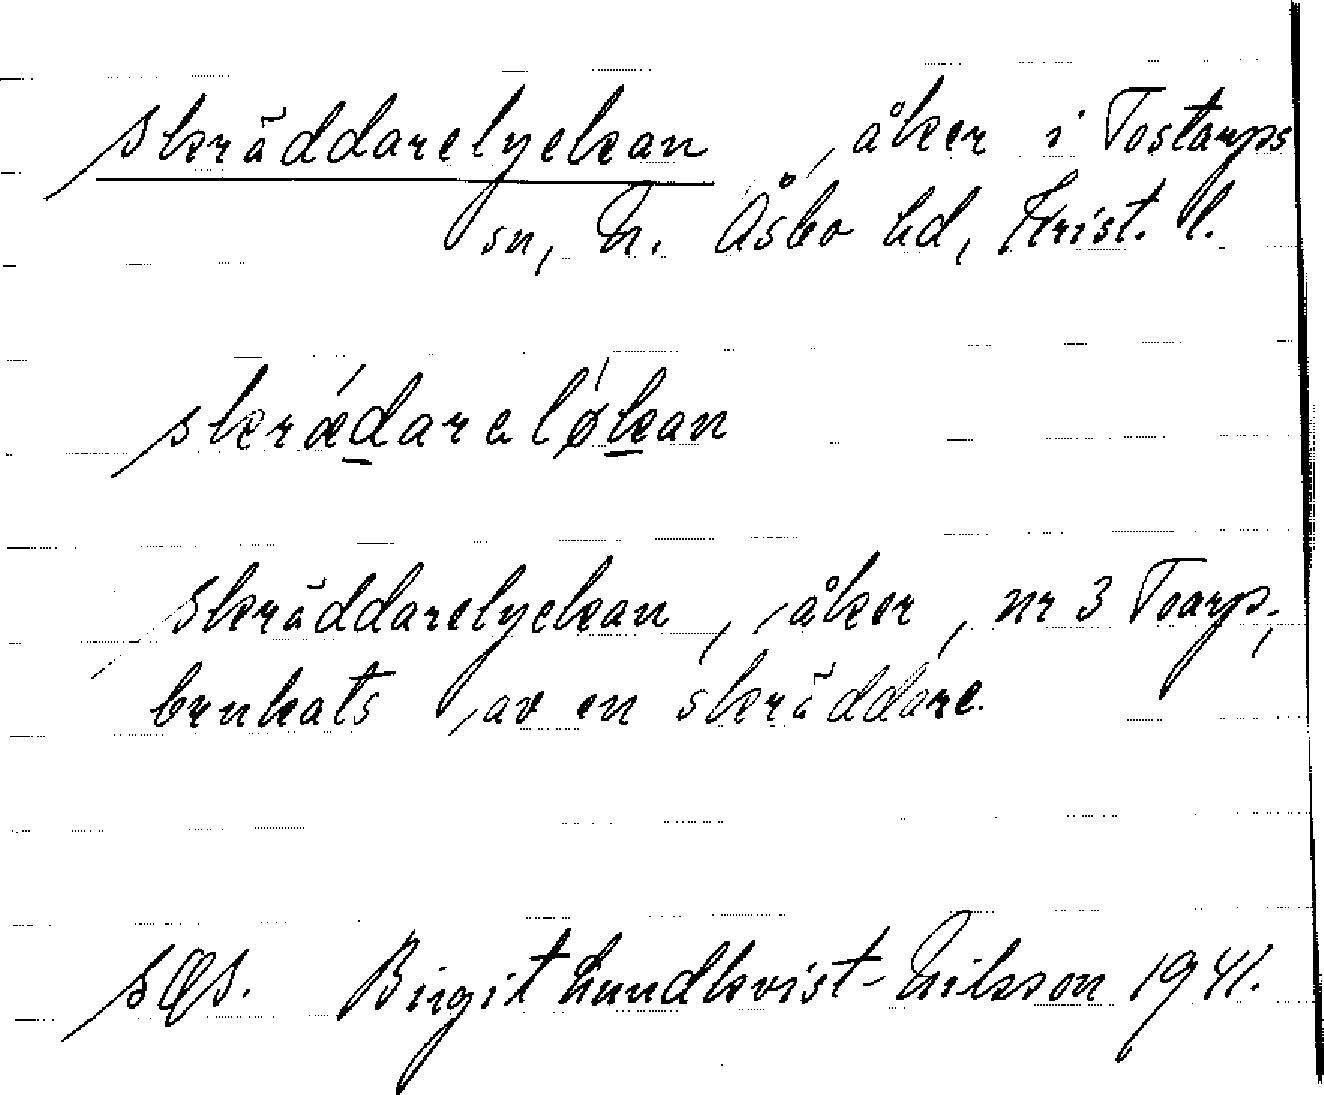 Skräddarelyckan, åker i Tostarps
sn, N. Åsbo hd, Krist. l.
skrǽdareløkan
Skräddarelyckan, åker, nr 3 Toarp;
brukats av en skräddare.
SOS. Birgit Lundkvist-Nilsson 1941.